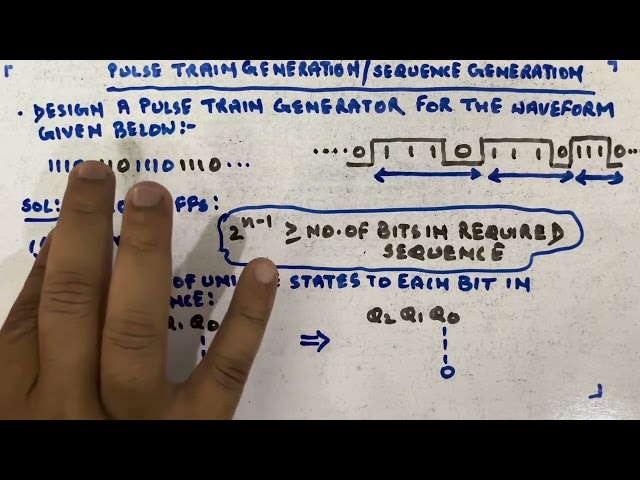 PULSE TRAIN GENERATION/SEQUENCE GENERATION
• DESIGN A PULSE TRAIN GENERATOR FOR THE WAVEFORM
GIVEN BELOW:-
1110 1110 1110 ...
.... 0 1 1 1 0 1 1 1 0 1 1 1 0 ...
SOL: FFS:
2^n-1 ≥ NO. OF BITS IN REQUIRED
SEQUENCE
OF STATES TO EACH BIT IN
Q1 Q0 ⇒ Q2 Q1 Q0
0